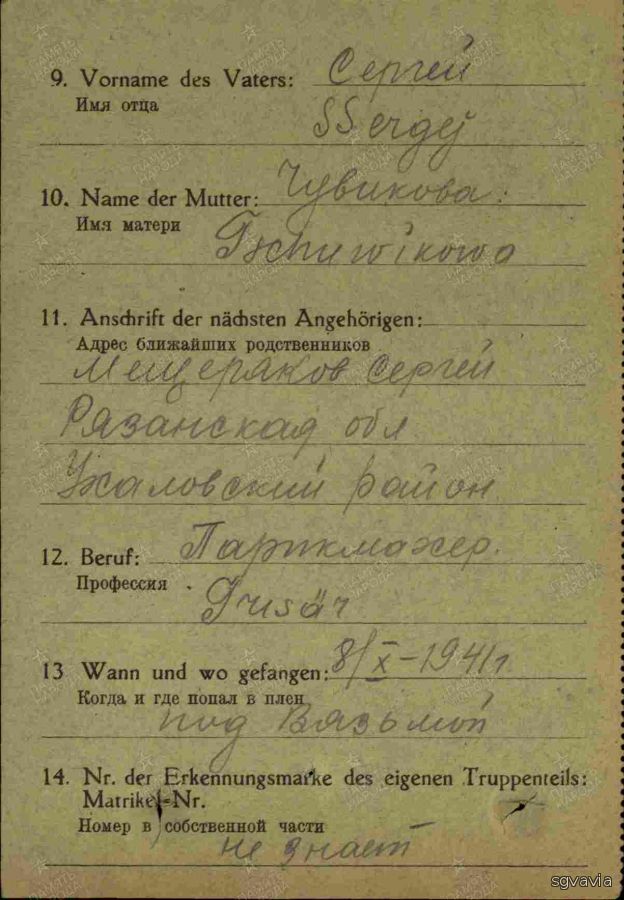 9. Vorname des Vaters: Сергей
Имя отца
SSergej
10. Name der Mutter: Чувикова.
Имя матери
Tschuwikowa
11. Anschrift der nächsten Angehörigen:
Адрес ближайших родственников
Мещеряков Сергей
Рязанская обл
Ухаловский район
12. Beruf: Парикмахер.
Профессия
Frisär
13 Wann und wo gefangen: 8/X-1941г
Когда и где попал в плен
под Вязьмой
14. Nr. der Erkennungsmarke des eigenen Truppenteils:
Matrikel-Nr.
Номер в собственной части
не знает
sgvavia